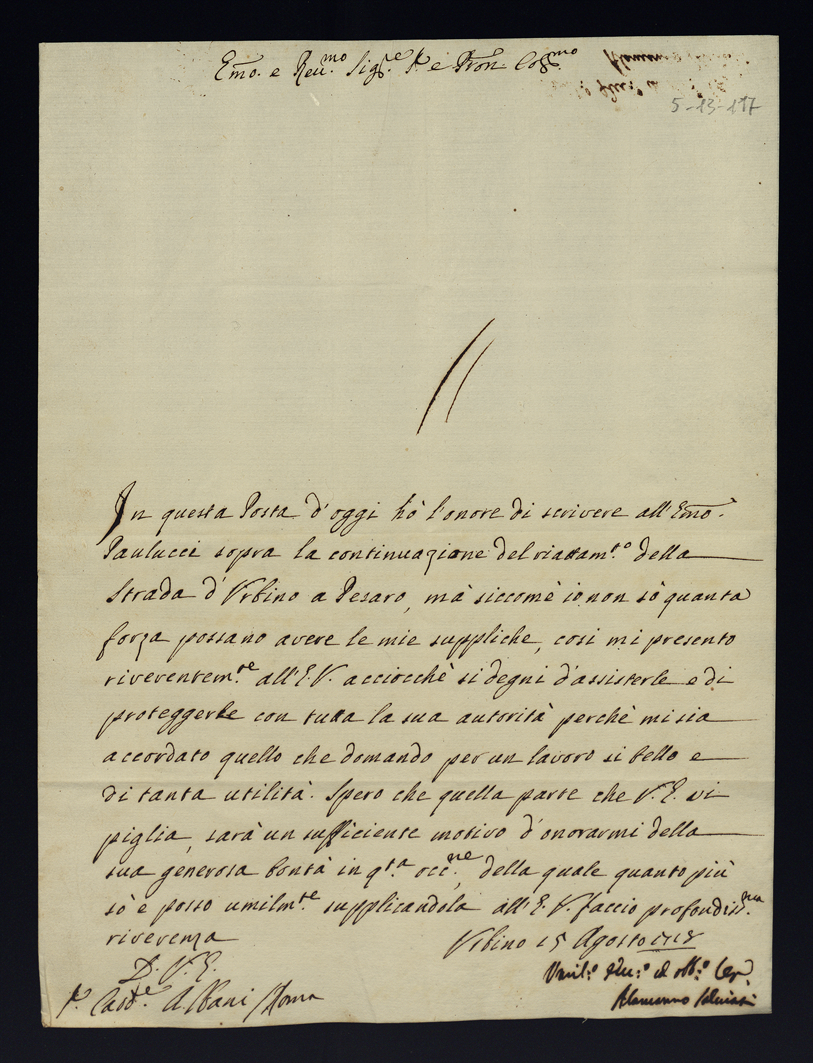 Emo. e Reu.mo Sig.re P. e Pron Col.mo
5-13-117
In questa Posta d'oggi hò l'onore di scrivere all'Emo.
Paulucci sopra la continuazione del riattam.to della
strada d'Urbino a Pesaro, mà siccome io non sò quanta
forza possano avere le mie suppliche, cosi mi presento
riverentem.te all'E.V. acciocchè si degni d'assisterle e di
proteggerle con tutta la sua autorità perchè mi sia
accordato quello che domando per un lavoro si bello e
di tanta utilità. Spero che quella parte che V.E. vi
piglia, sarà un sufficiente motivo d'onorarmi della
sua generosa bontà in q.ta occ.ne, della quale quanto più
sò e posso umilm.te supplicandola all'E.V. faccio profondiss.ma
riverenza
Urbino 15 Agosto 1718
D. V. E.
Umil.o et obb.o Ser.
Alamanno Salviati
S. Card.le Albani Roma